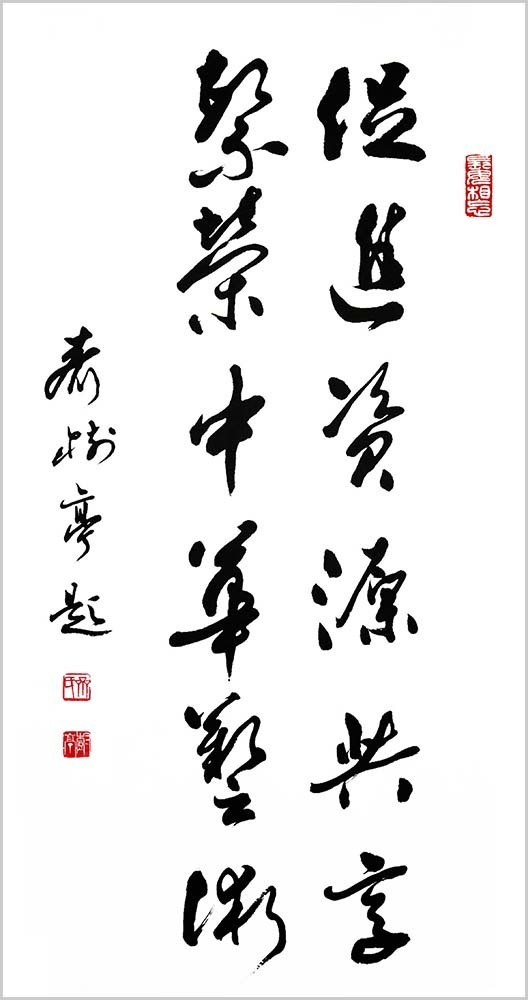 促进资源共享
繁荣中华艺術
树亭题